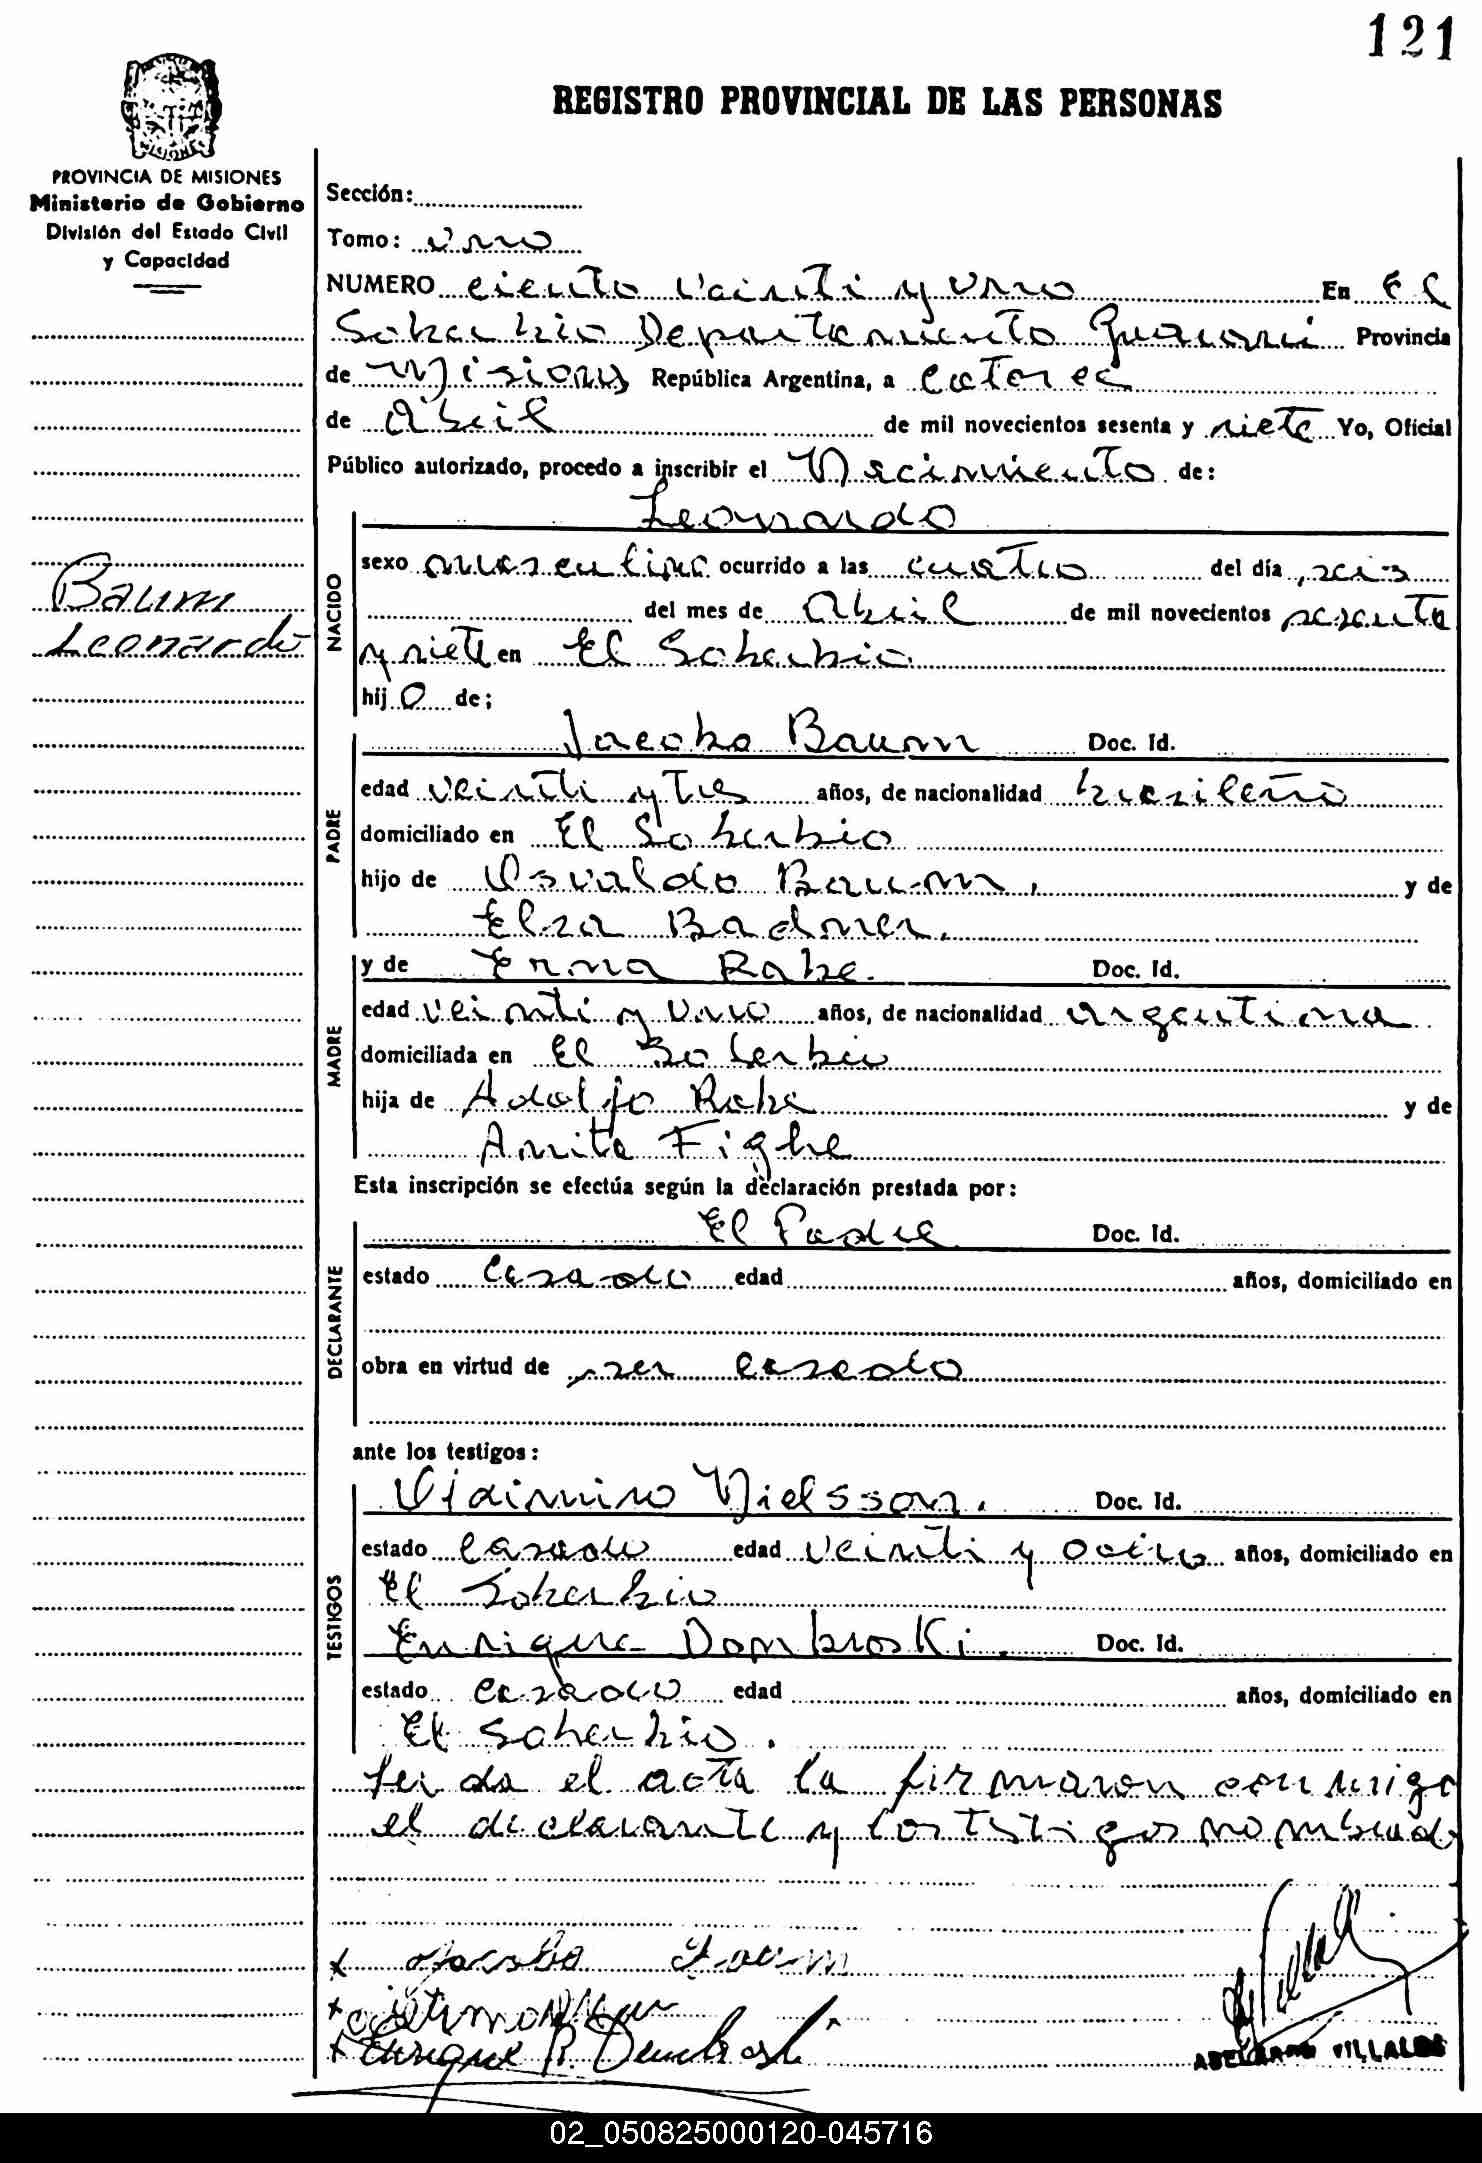 121
REGISTRO PROVINCIAL DE LAS PERSONAS
PROVINCIA DE MISIONES
Ministerio de Gobierno
División del Estado Civil
y Capacidad
Baum
Leonardo
Sección:
Tomo: uno
NUMERO ciento veinti y uno En El
Soberbio Departamento Guaraní Provincia
de Misiones República Argentina, a catorce
de Abril de mil novecientos sesenta y siete Yo, Oficial
Público autorizado, procedo a inscribir el Nacimiento de:
Leonardo
NACIDO
sexo masculino ocurrido a las cuatro del día seis
del mes de Abril de mil novecientos sesenta
y siete en El Soberbio
hijo de;
PADRE
Jacobo Baum Doc. Id.
edad veinti y tres años, de nacionalidad brasileño
domiciliado en El Soberbio
hijo de Osvaldo Baum, y de
Elsa Badner.
MADRE
y de Erna Rabe. Doc. Id.
edad veinti y uno años, de nacionalidad argentina
domiciliada en El Soberbio
hija de Adolfo Rabe y de
Anita Fighe
Esta inscripción se efectúa según la declaración prestada por:
DECLARANTE
El Padre Doc. Id.
estado casado edad años, domiciliado en
obra en virtud de ser casado
ante los testigos:
TESTIGOS
Nielsson. Doc. Id.
estado casado edad veinti y ocho años, domiciliado en
El Soberbio
Enrique Dombroski. Doc. Id.
estado casado edad años, domiciliado en
El Soberbio.
Leida el acta la firmaron conmigo
el declarante y los testigos nombrado
x Jacobo Baum
x
x Enrique R.
VILLALBA
02_050825000120-045716